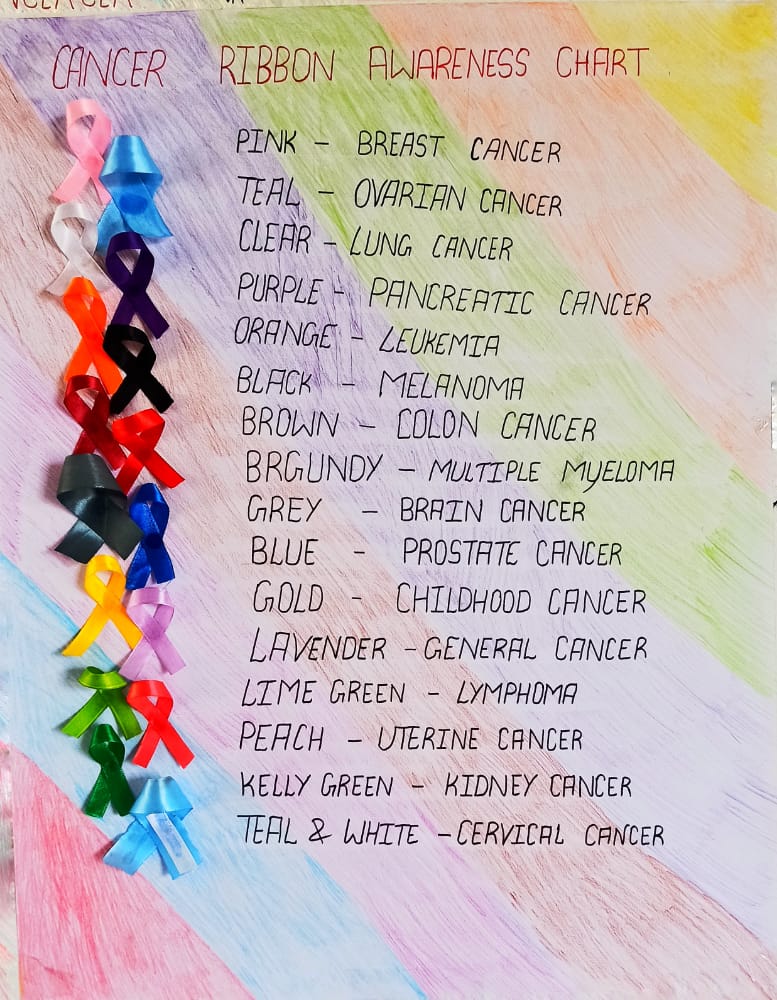 CANCER RIBBON AWARENESS CHART
PINK - BREAST CANCER
TEAL - OVARIAN CANCER
CLEAR - LUNG CANCER
PURPLE - PANCREATIC CANCER
ORANGE - LEUKEMIA
BLACK - MELANOMA
BROWN - COLON CANCER
BRGUNDY - MULTIPLE MYELOMA
GREY - BRAIN CANCER
BLUE - PROSTATE CANCER
GOLD - CHILDHOOD CANCER
LAVENDER - GENERAL CANCER
LIME GREEN - LYMPHOMA
PEACH - UTERINE CANCER
KELLY GREEN - KIDNEY CANCER
TEAL & WHITE - CERVICAL CANCER